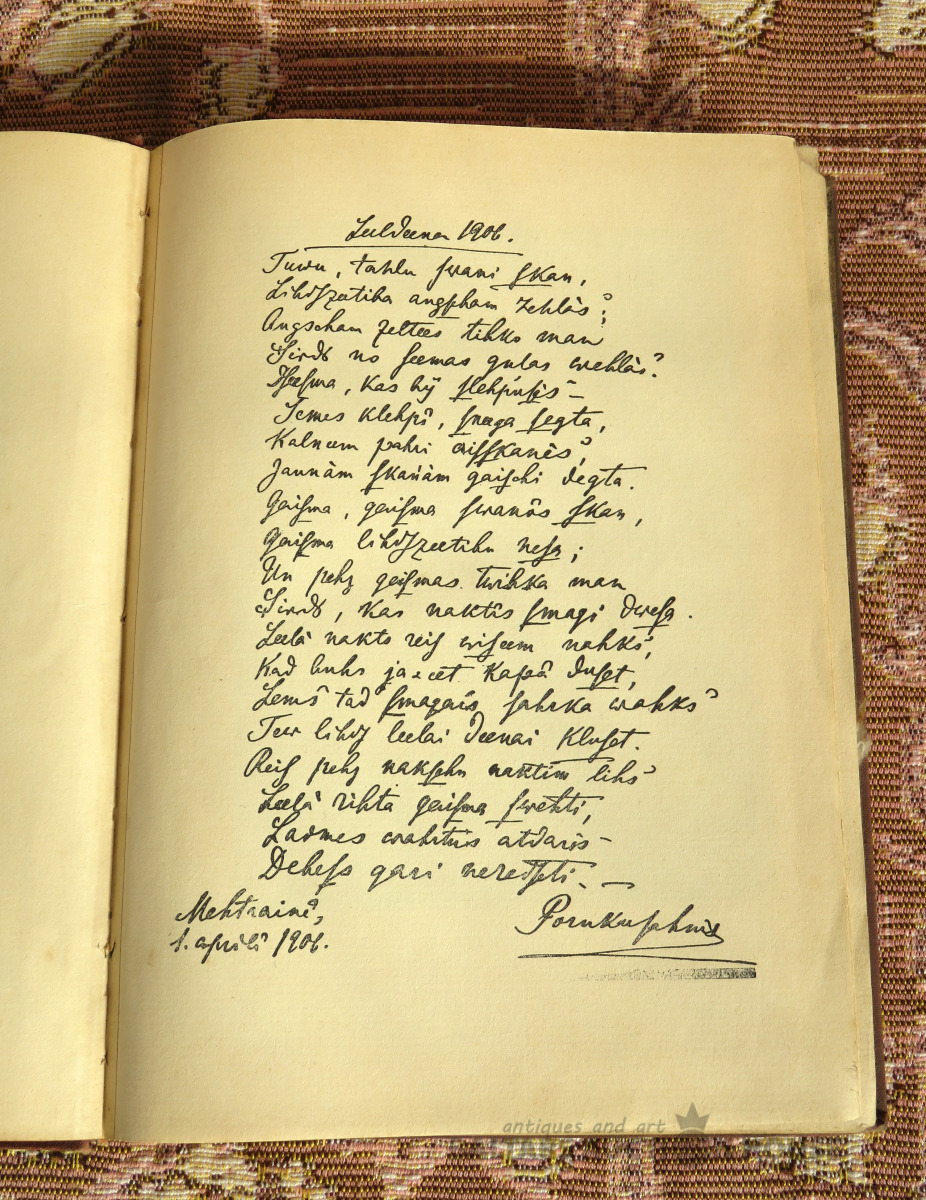 Leeldeena 1906.
Tuwu, tahlu swani skan,
Lihdszeetiba augscham zehlàs;
Augscham zeltees tihko man
Sirds no seemas gulas wehlàs.
Dseesma, kas bij slehpusis –
Semes klehpî, sneega segta,
Kalneem pahri aisskanês,
Jaunàm skanàm gaischi degta.
Gaisma, gaisma swanôs skan,
Gaisma lihdszeetibu nesa;
Un pehz gaismas twihka man
Sirds, kas naktîs smagi dwesa.
Leelà nakts reis wiseem nahks,
Kad buhs jaeet kapâ duset,
Lems tad smagais sahrka wahks
Tew lihds leelai deenai kluset.
Reis pehz naksehu naktim lihs
Leelà rihta gaisma swehti,
Laimes wahrtus atdaris –
Debess gari neredseti. –
Mehtrainê,
1. aprilî 1906.
Poruku Jahnis
antiques and art